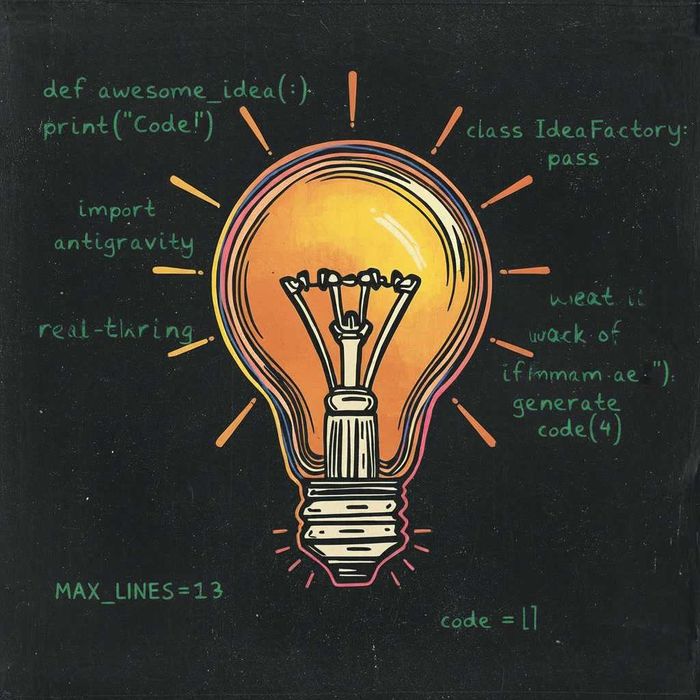 def awesome_idea(:)
print("Code!")
class IdeaFactory:
pass
import
antigravity
real-tkring
wack of
generate
code(4)
MAX_LINES=13
code = []